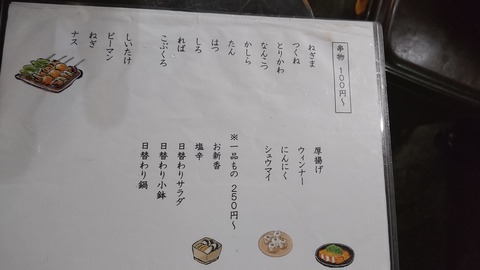 串物 100円～
ねぎま
つくね
とりかわ
なんこつ
かしら
たん
はつ
しろ
ればー
こぶくろ
しいたけ
ピーマン
ねぎ
ナス
厚揚げ
ウィンナー
にんにく
シュウマイ
※一品もの 250円～
お新香
塩辛
日替わりサラダ
日替わり小鉢
日替わり鍋